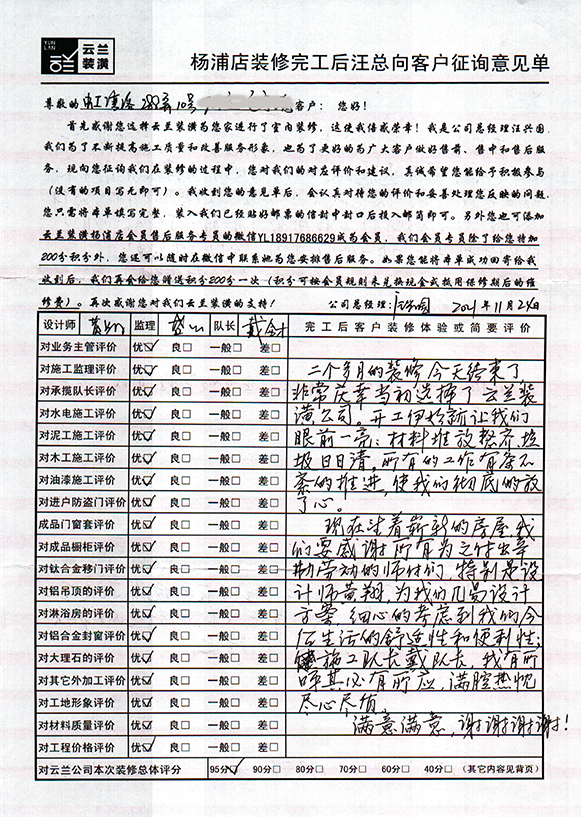 YUN LAN
云兰
装潢
杨浦店装修完工后汪总向客户征询意见单
尊敬的 客户： 您好！
首先感谢您选择云兰装潢为您家进行了室内装修，这使我倍感荣幸！我是公司总经理汪兴国，
我们为了不断提高施工质量和改善服务形象，也为了更好的为广大客户做好售前、售中和售后服
务，现向您征询我们在装修的过程中，您对我们的对应评价和建议，真诚希望您能给予积极参与
（没有的项目写无即可）。我收到您的意见单后，会认真对待您的评价和妥善处理您反映的问题，
您只需将本单填写完整，装入我们已经贴好邮票的信封中封口后投入邮筒即可。另外您也可添加
云兰装潢杨浦店会员售后服务专员的微信YL18917686629成为会员，我们会员专员除了给您特加
200分积分外，您还可以随时在微信中联系她为您安排售后服务。如果您能将本单成功回寄给我
收到后，我们再会给您赠送积分200分一次（积分可按会员规则来兑换现金或抵用保修期后的维
修费）。再次感谢您对我们云兰装潢的支持！ 公司总经理： 2021年11月24日
设计师 监理 队长 完工后客户装修体验或简要评价
对业务主管评价 优☑ 良□ 一般□ 差□
对施工监理评价 优☑ 良□ 一般□ 差□ 二个多月的装修今天结束了，
对承揽队长评价 优☑ 良□ 一般□ 差□ 非常庆幸当初选择了云兰装
对水电施工评价 优☑ 良□ 一般□ 差□ 潢公司。开工伊始就让我们
对泥工施工评价 优☑ 良□ 一般□ 差□ 眼前一亮：材料堆放整齐垃
对木工施工评价 优☑ 良□ 一般□ 差□ 圾日日清，所有的工作有条不
对油漆施工评价 优☑ 良□ 一般□ 差□ 紊的推进，使我们彻底的放
对进户防盗门评价 优☑ 良□ 一般□ 差□ 了心。
成品门窗套评价 优☑ 良□ 一般□ 差□ 现在望着崭新的房屋，我
对成品橱柜评价 优☑ 良□ 一般□ 差□ 们要感谢所有为之付出辛
对钛合金移门评价 优☑ 良□ 一般□ 差□ 勤劳动的师付们，特别是设
对铝吊顶的评价 优☑ 良□ 一般□ 差□ 计师黄翔，为我们几易设计
对淋浴房的评价 优☑ 良□ 一般□ 差□ 方案，细心的考虑到我们今
对铝合金封窗评价 优☑ 良□ 一般□ 差□ 后生活的舒适性和便利性；
对大理石的评价 优☑ 良□ 一般□ 差□ 施工队长戴队长，我有所
对其它外加工评价 优☑ 良□ 一般□ 差□ 呼其必有所应，满腔热忱
对工地形象评价 优☑ 良□ 一般□ 差□ 尽心尽值，
对材料质量评价 优☑ 良□ 一般□ 差□ 满意满意，谢谢谢谢！
对工程价格评价 优☑ 良□ 一般□ 差□
对云兰公司本次装修总体评分 95分☑ 90分□ 80分□ 70分□ 60分□ 40分□ （其它内容见背页）